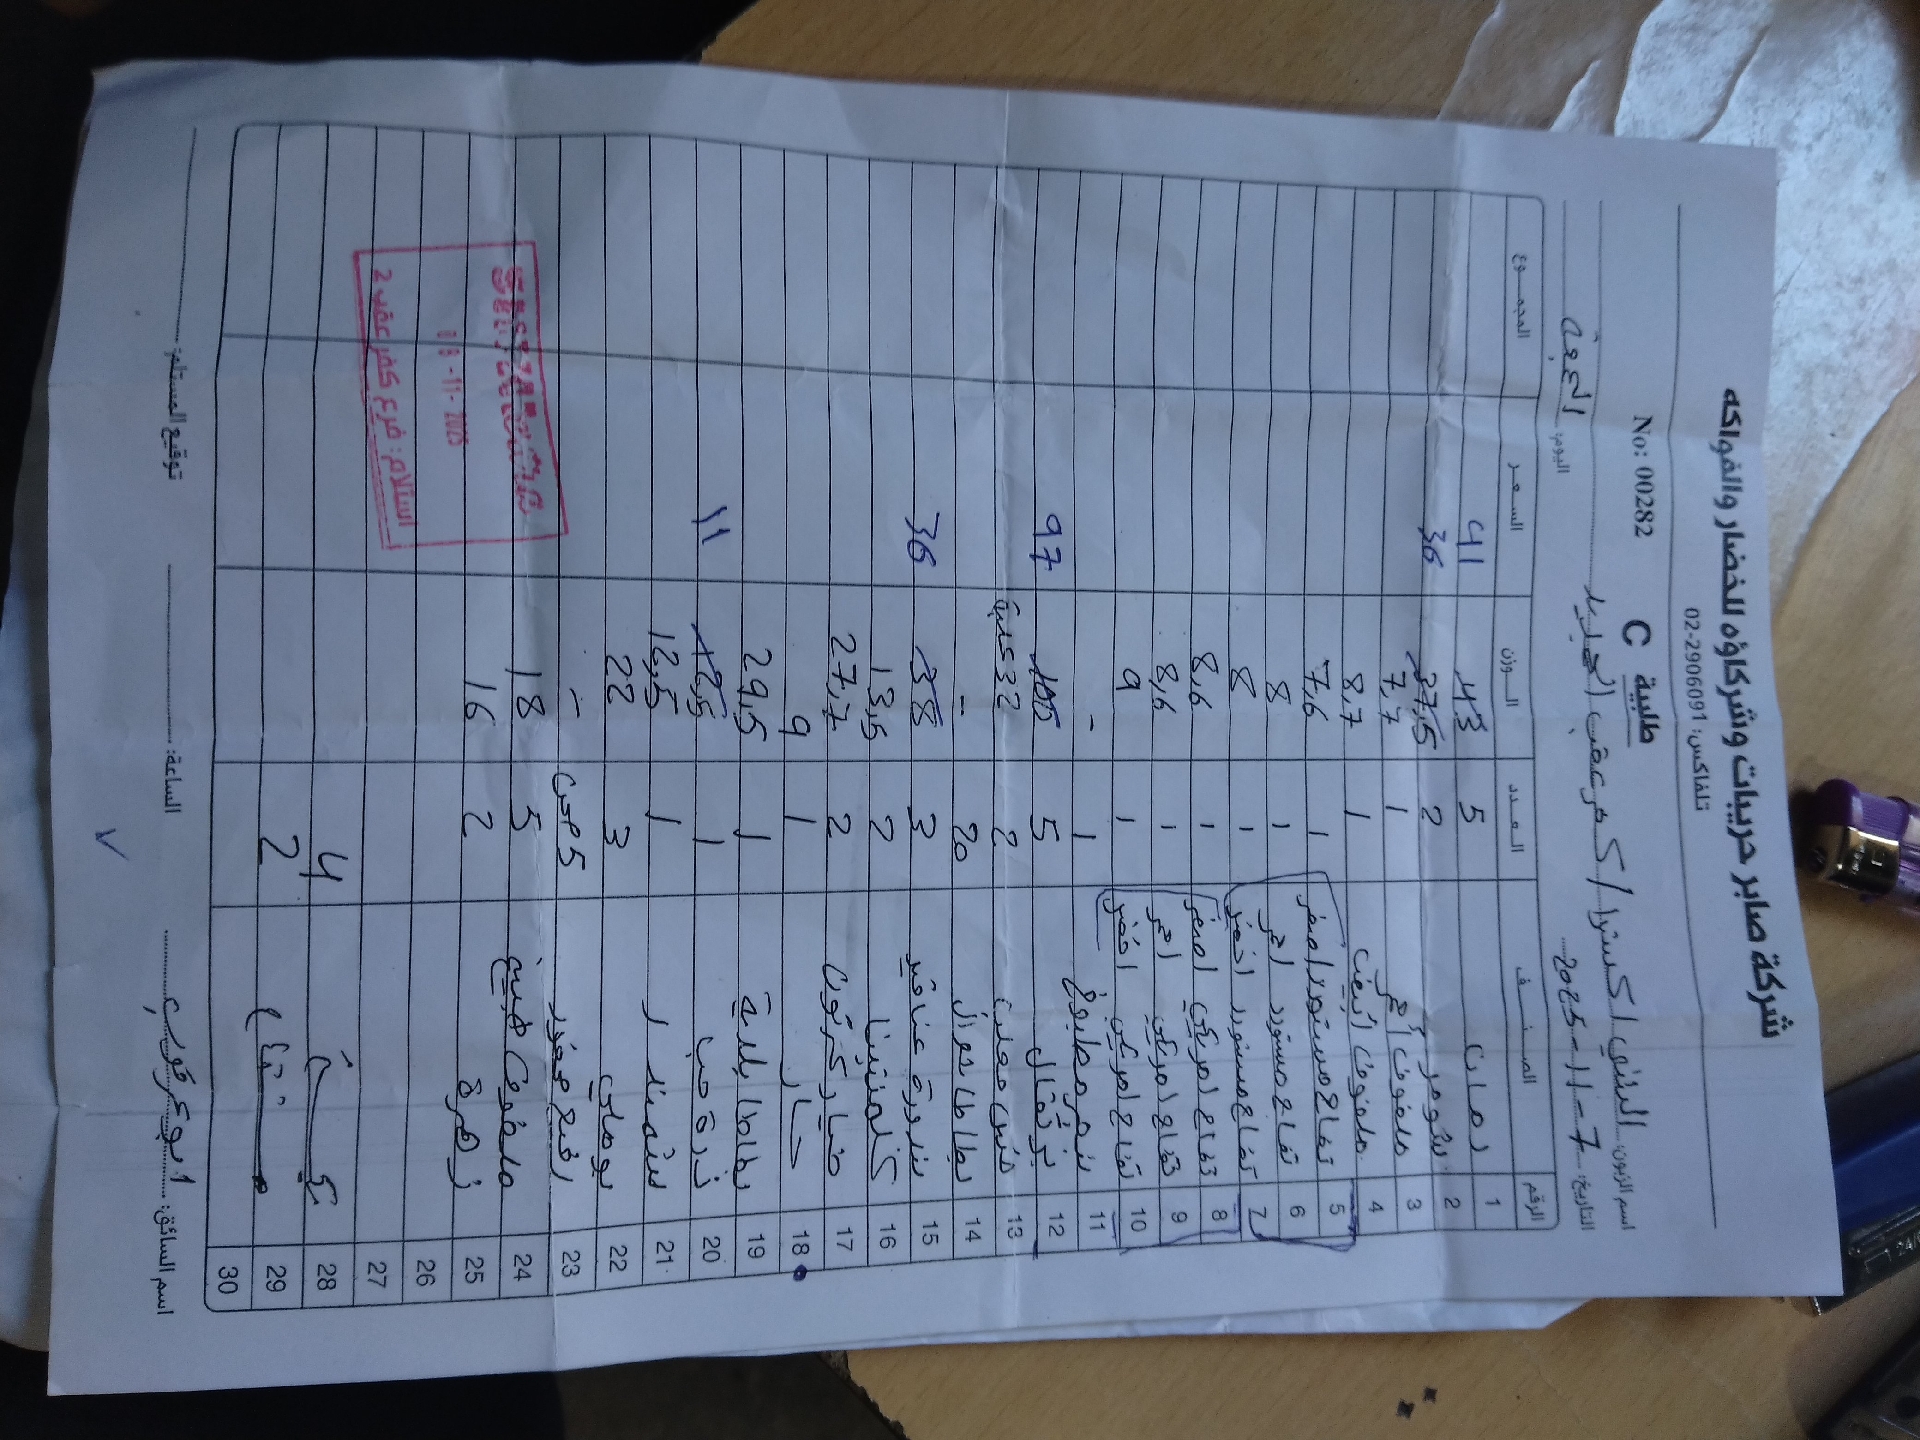 شركة صابر حربيات وشركاؤه للخضار والفواكه
تلفاكس: 02-2906091
No: 00282 طلبية C
اسم الزبون: الشني اكسترا / كفر عقب الجديد
التاريخ: 7-11-2025 اليوم: الجمعة
الرقم الصنف العدد الوزن السعر المجموع
1 رمان 5 43 41
2 شومر 2 37,5 36
3 ملفوف أحمر 1 7,7
4 ملفوف أبيض 1 8,7
5 تفاح مستورد اصفر 1 7,6
6 تفاح مستورد احمر 1 8
7 تفاح مستورد اخضر 1 8
8 تفاح امريكي اصفر 1 8,6
9 تفاح امريكي احمر 1 8,6
10 تفاح امريكي اخضر 1 9
11 شمر مطبوخ 1 -
12 برتقال 5 105 97
13 2 32
14 بطاطا 20 -
15 بندورة عناقيد 3 38 36
16 كلمنتينا 2 13,5
17 خيار كرتون 2 27,7
18 خيار 1 9
19 بطاطا بلدية 1 29,5
20 ذرة 1 12,5 11
21 شمندر 1 12,5
22 بوملي 3 22
23 5 صحن -
24 ملفوف صيني 5 18
25 زهرة 2 16
26
27
28 4
29 2
30
08-11-2025
استلام: فرع كفر عقب 2
اسم السائق: ابو كرقوب الساعة: توقيع المستلم: